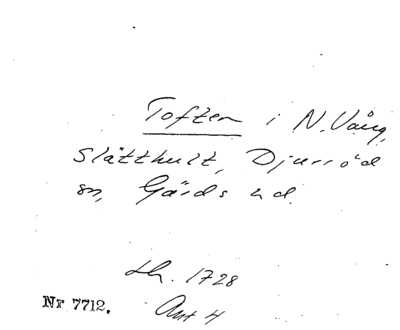 Toften i N. Vång,
Slätthult, Djurröd
sn, Gärds hd.
Lh. 1728
Nr 7712. Ant 4